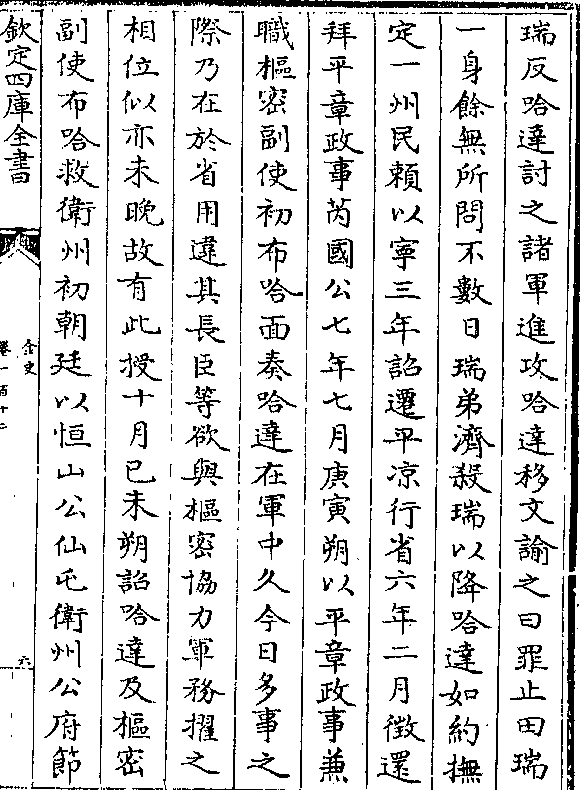 瑞反哈達討之諸軍進攻哈達移文諭之曰罪止田瑞
一身餘無所問不數日瑞弟濟殺瑞以降哈達如約撫
定一州民頼以寧三年詔遷平凉行省六年二月徴還
拜平章政事芮國公七年七月庚寅朔以平章政事兼
職樞密副使初布哈面奏哈達在軍中久今日多事之
際乃在於省用違其長臣等欲與樞密協力軍務擢之
相位似亦未晩故有此授十月已未朔詔哈達及樞密
副使布哈救衛州初朝廷以恒山公仙屯衛州公府節
欽定四庫全書
金史
卷一百十二
六